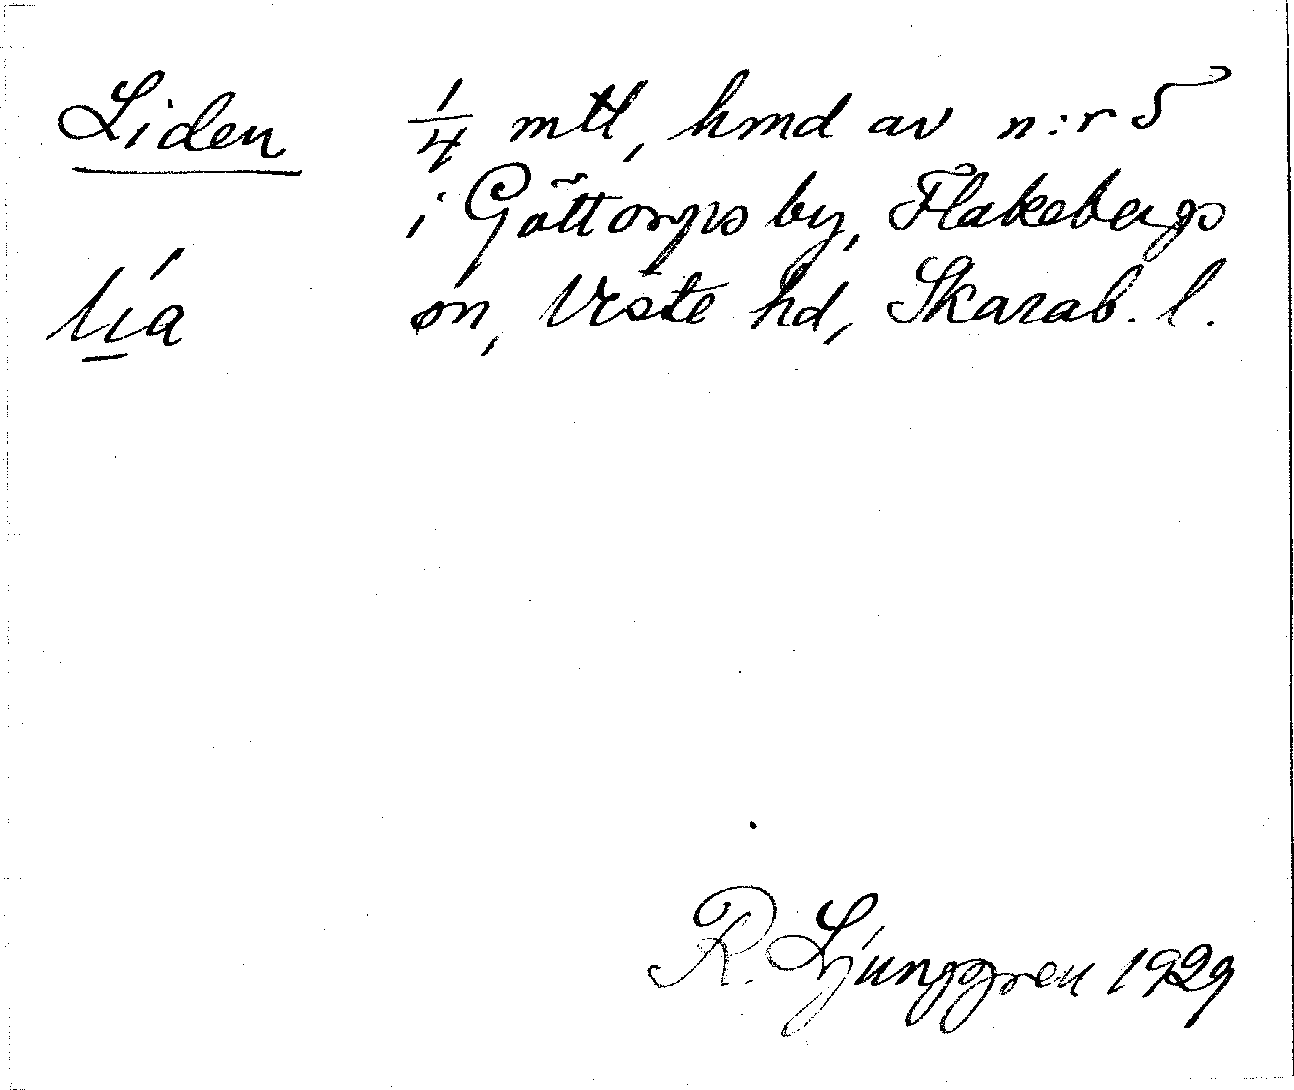 Liden 1/4 mtl, hmd av n:r 5
i Göttorps by, Flakebergs
lia sn, Viste hd, Skarab. l.
R. Ljunggren 1929